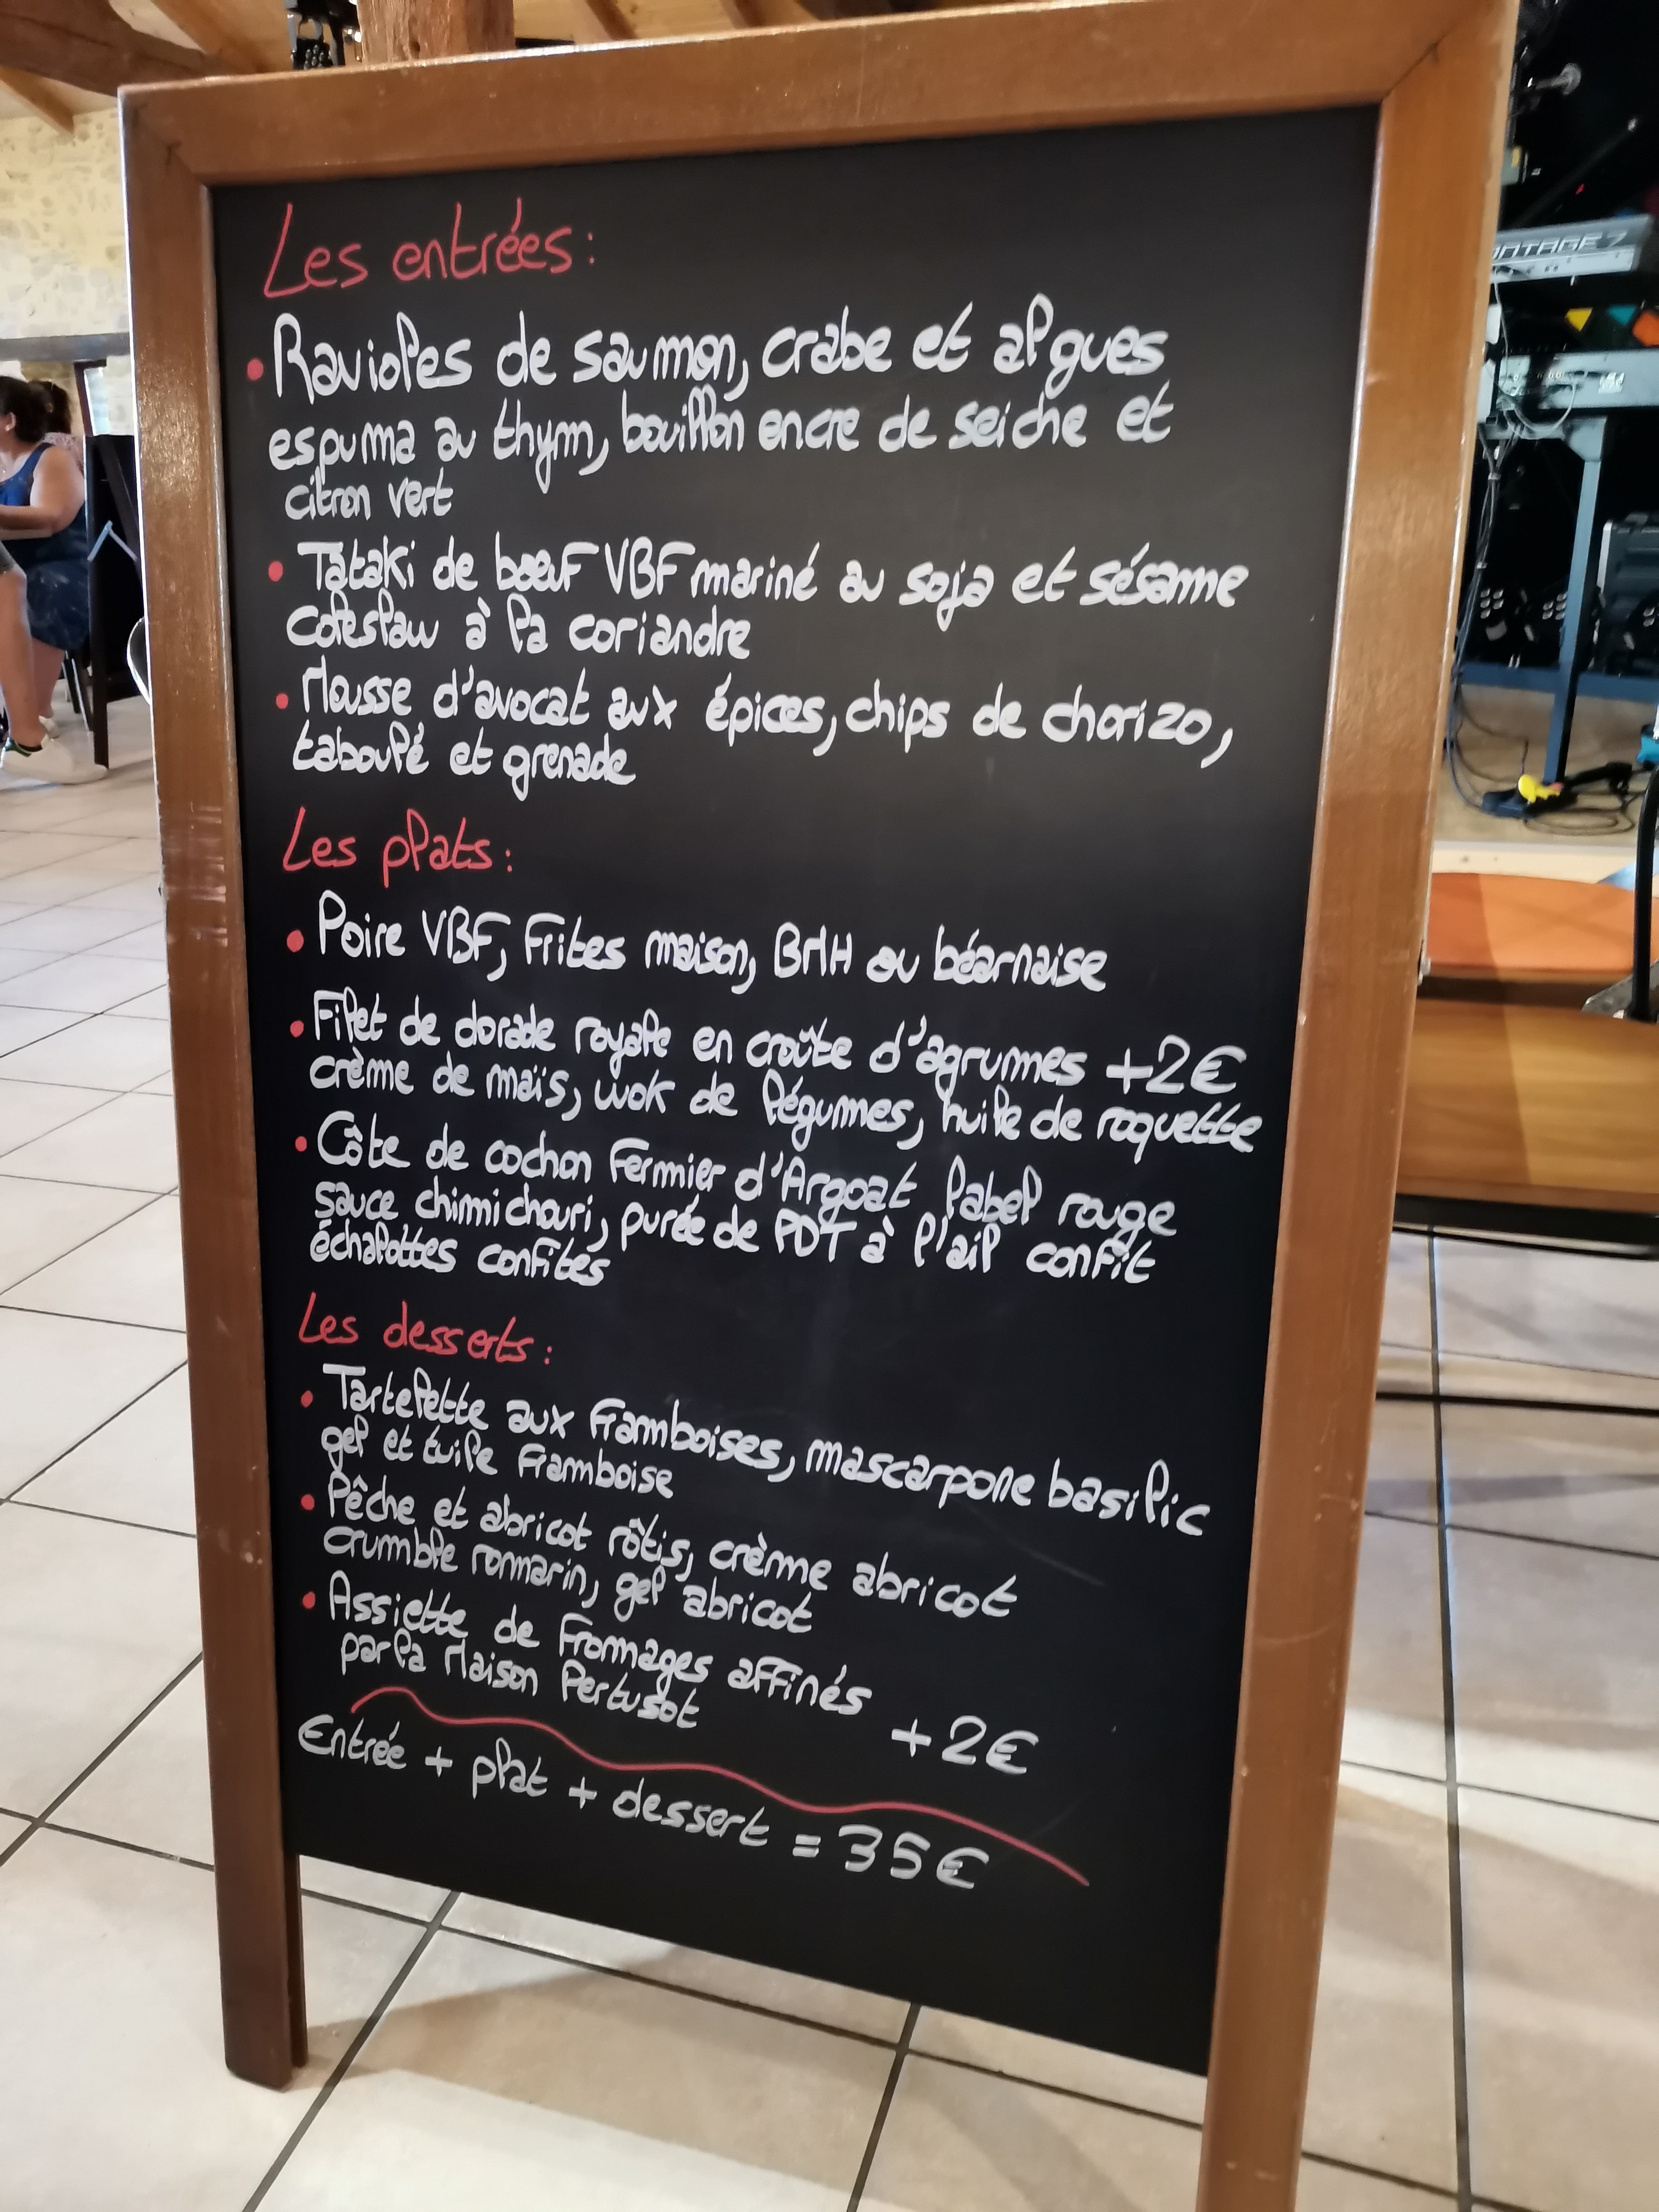 Les entrées:
• Ravioles de saumon, crabe et algues
espuma au thym, bouillon encre de seiche et
citron vert
• Tataki de bœuf VBF mariné au soja et sésame
coleslaw à la coriandre
• Mousse d'avocat aux épices, chips de chorizo,
taboulé et grenade
Les plats:
• Poire VBF, frites maison, BMH ou béarnaise
• Filet de dorade royale en croûte d'agrumes +2€
crème de maïs, wok de légumes, huile de roquette
• Côte de cochon fermier d'Argoat label rouge
sauce chimichouri, purée de PDT à l'ail confit
échalottes confites
Les desserts:
• Tartelette aux framboises, mascarpone basilic
gel et tuile framboise
• Pêche et abricot rôtis, crème abricot
crumble romarin, gel abricot
• Assiette de fromages affinés
par la Maison Pertusot +2€
Entrée + plat + dessert = 35€